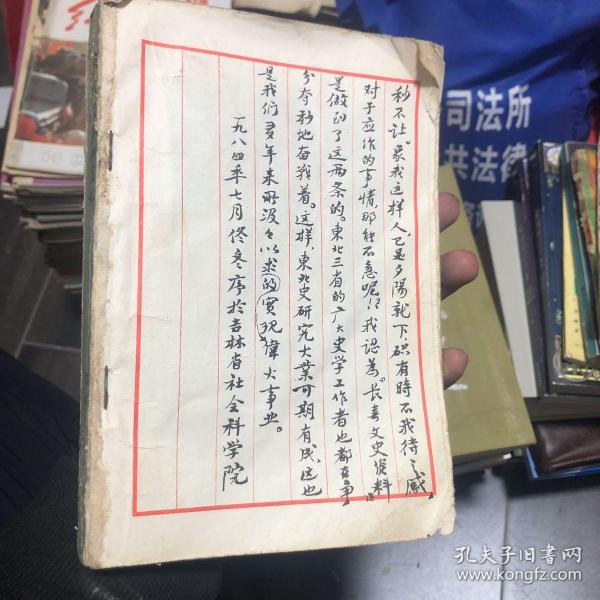 秒不让。象我这样人，已是夕陽就下，砎有時不我待之感。
对于应作的事情那能不急呢！？我认為《长春文史资料》
是做到了这两条的。東北三省的广大史学工作者也都在争
分夺秒地奋战着。这样，東北史研究大業可期有成，这也
是我们多年来所汲々以求的宝现偉大事业。
一九八四年七月佟冬序於吉林省社会科学院
司法所
共法律
孔夫子旧书网
www.kongfz.com